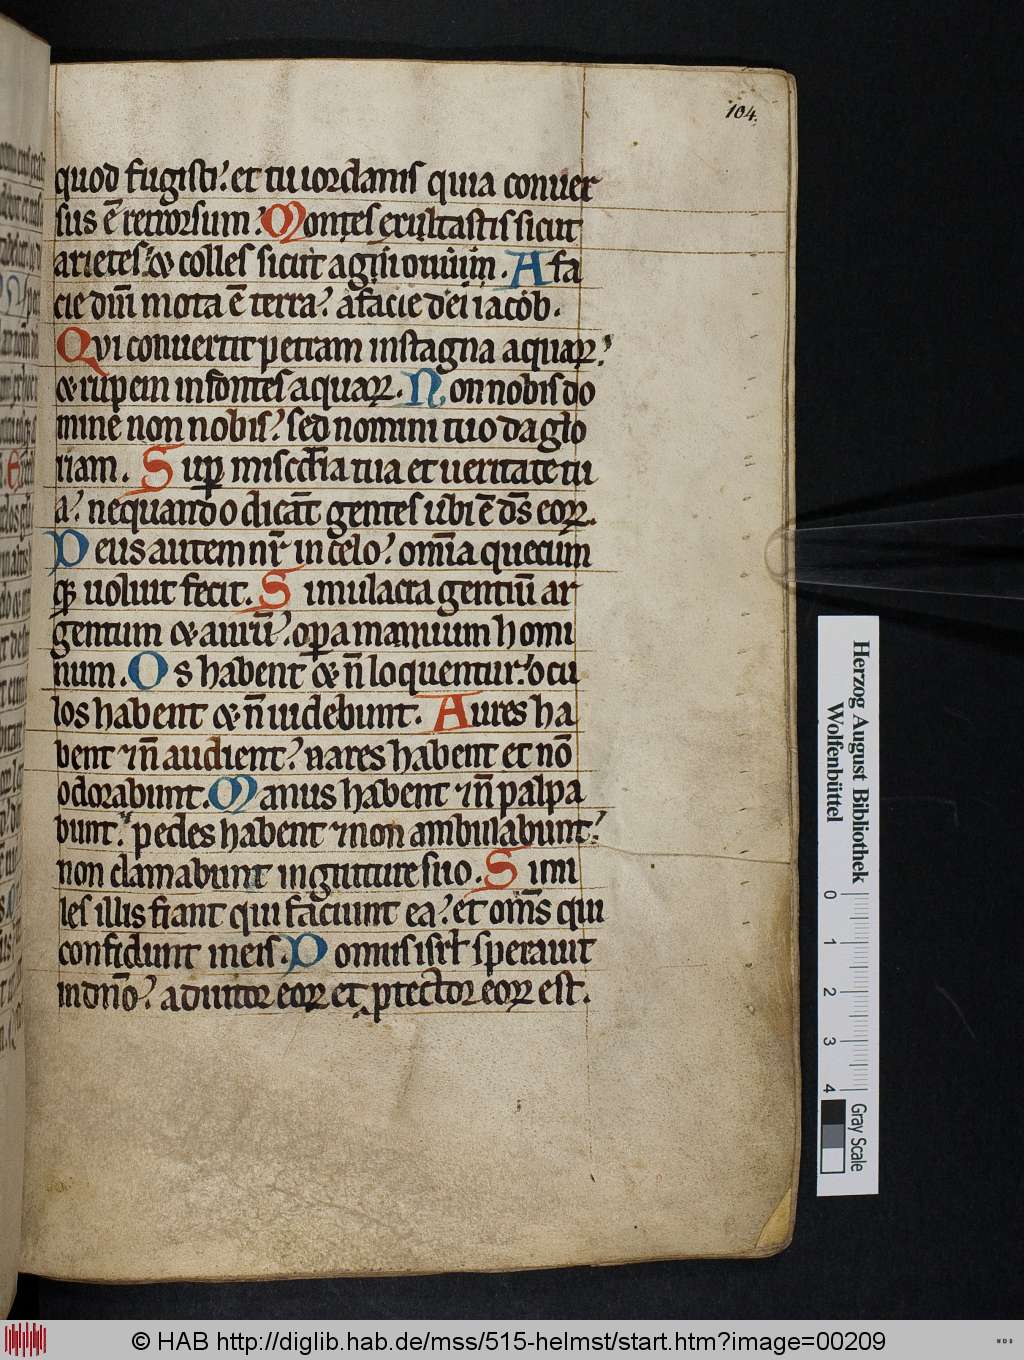 104.
quod fugisti? et tu iordanis quia conuer
sus ē retrorsum? Montes exultastis sicut
arietes? & colles sicut agni ouium. A fa
cie dn̄i mota ē terra? a facie dei iacob.
Qui conuertit petram in stagna aquaꝝ?
& rupem in fontes aquaꝝ. Non nobis do
mine non nobis? sed nomini tuo da glo
riam. Sup misc̄dia tua et ueritate tu
a? nequando dicāt gentes ubi ē ds̄ eoꝝ.
Deus autem nr̄ in celo? om̄ia quecum
qꝫ uoluit fecit. Simulacra gentiū ar
gentum & aurū? oꝑa manuum homi
num. Os habent & n̄ loquentur? ocu
los habent & n̄ uidebunt. Aures ha
bent ⁊ n̄ audient? nares habent et nō
odorabunt. Manus habent ⁊ n̄ palpa
bunt? pedes habent ⁊ non ambulabunt?
non clamabunt in gutture suo. Simi
les illis fiant qui faciunt ea? et om̄s qui
confidunt in eis. Domus isrł sperauit
in dn̄o? adiutor eoꝝ et ꝓtector eoꝝ est.
Herzog August Bibliothek
Wolfenbüttel
0 1 2 3 4
Gray Scale
© HAB http://diglib.hab.de/mss/515-helmst/start.htm?image=00209